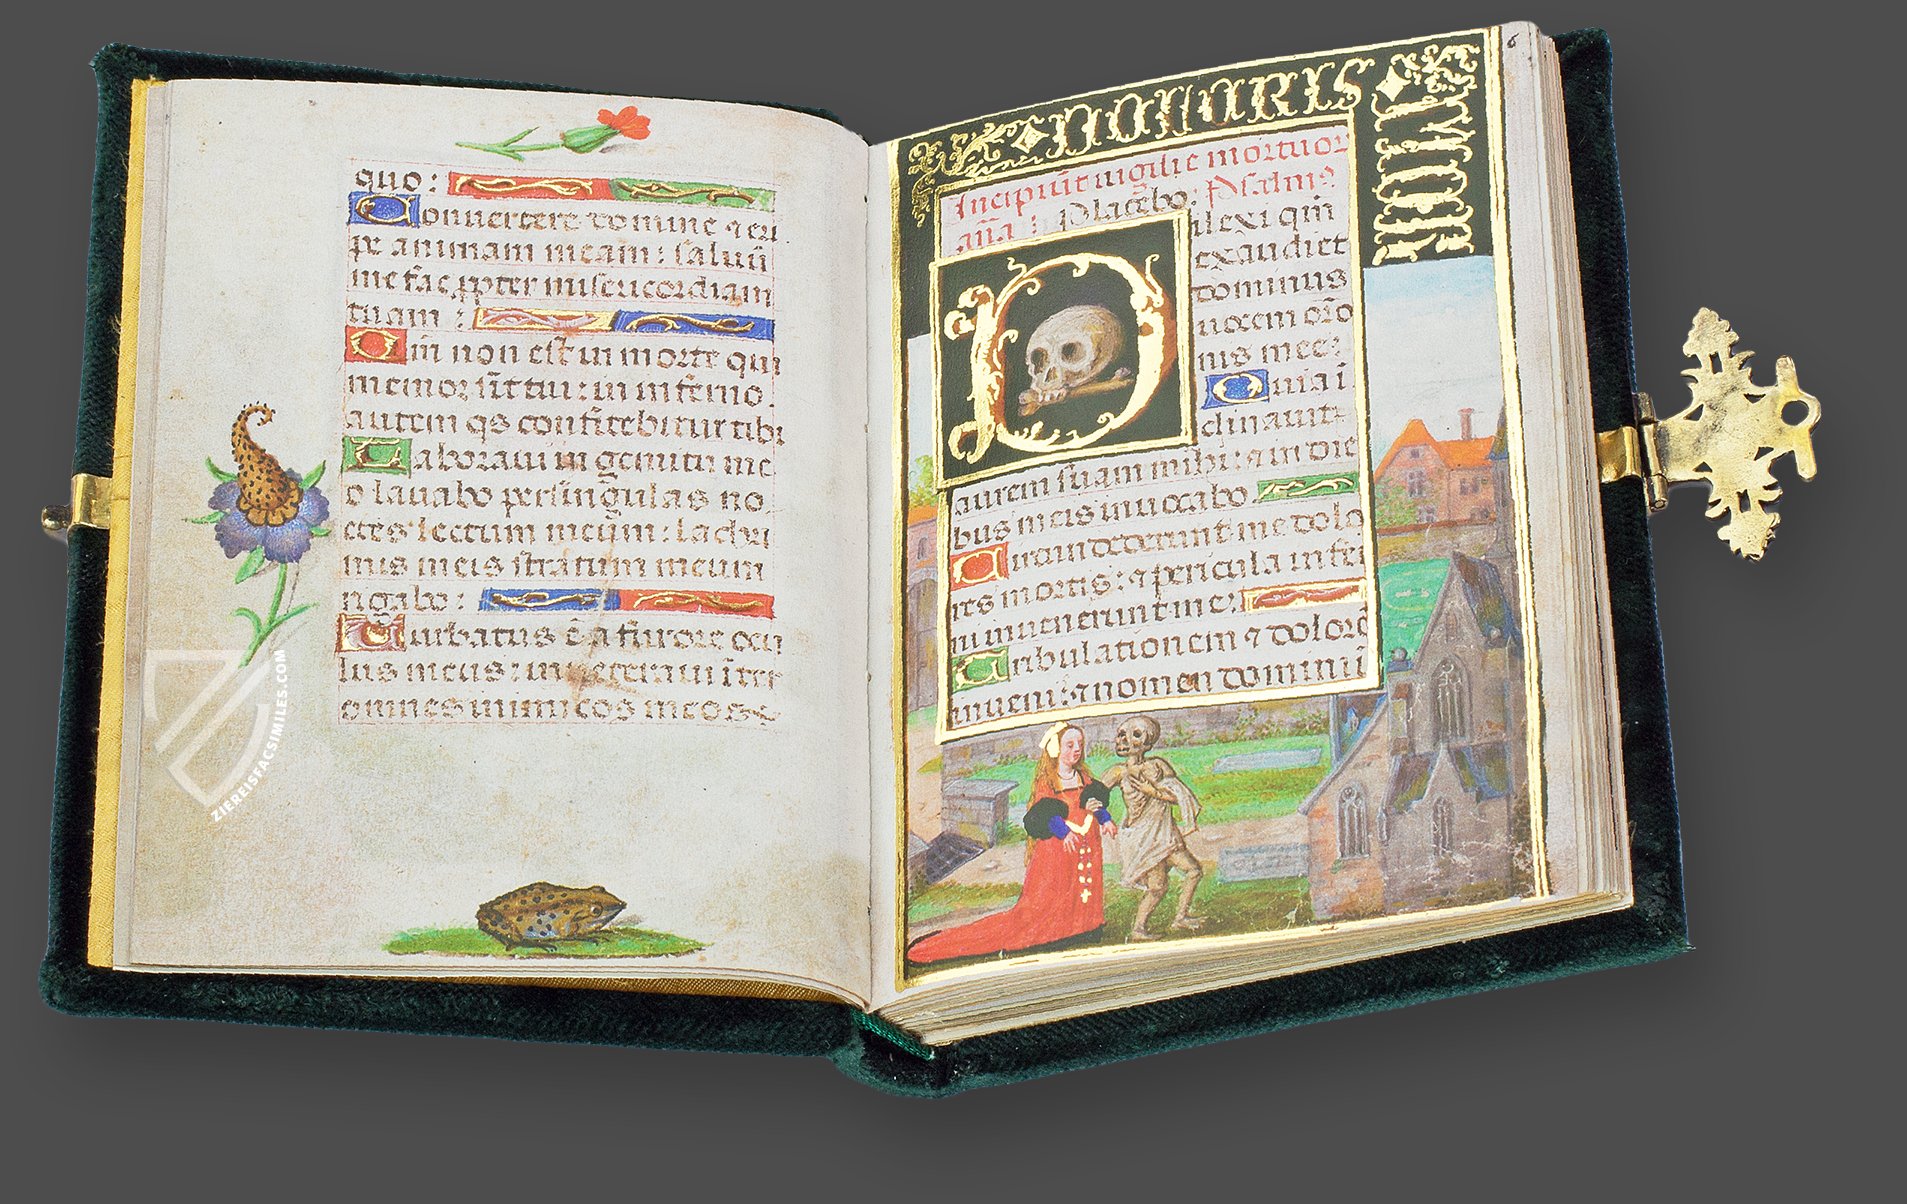 quo:
Conuertere domine ⁊ eri
pe animam meam: saluū
me fac ꝓpter misericordiam
tuam:
Qm̄ non est in morte qui
memor sit tui: in inferno
autem qs confitebitur tibi
Laboraui in gemitu me
o lauabo per singulas no
ctes lectum meum: lachri
mis meis stratum meum
rigabo:
Turbatus ē a furore ocu
lus meus: inueteraui iter
omnes inimicos meos
ZIEREISFACSIMILES.COM
6
DOLORIS
Incipiūt uigilie mortuor
an̄a: Placebo: Psalmꝰ
Dilexi qm̄
exaudiet
dominus
uocem orō
nis mee:
Quia i
clinauit
aurem suam mihi: ⁊ in die
bus meis inuocabo
Circundederunt me dolo
res mortis: ⁊ pericula infer
ni inuenerunt me:
Tribulationem ⁊ dolorē
inueni: ⁊ nomen domini